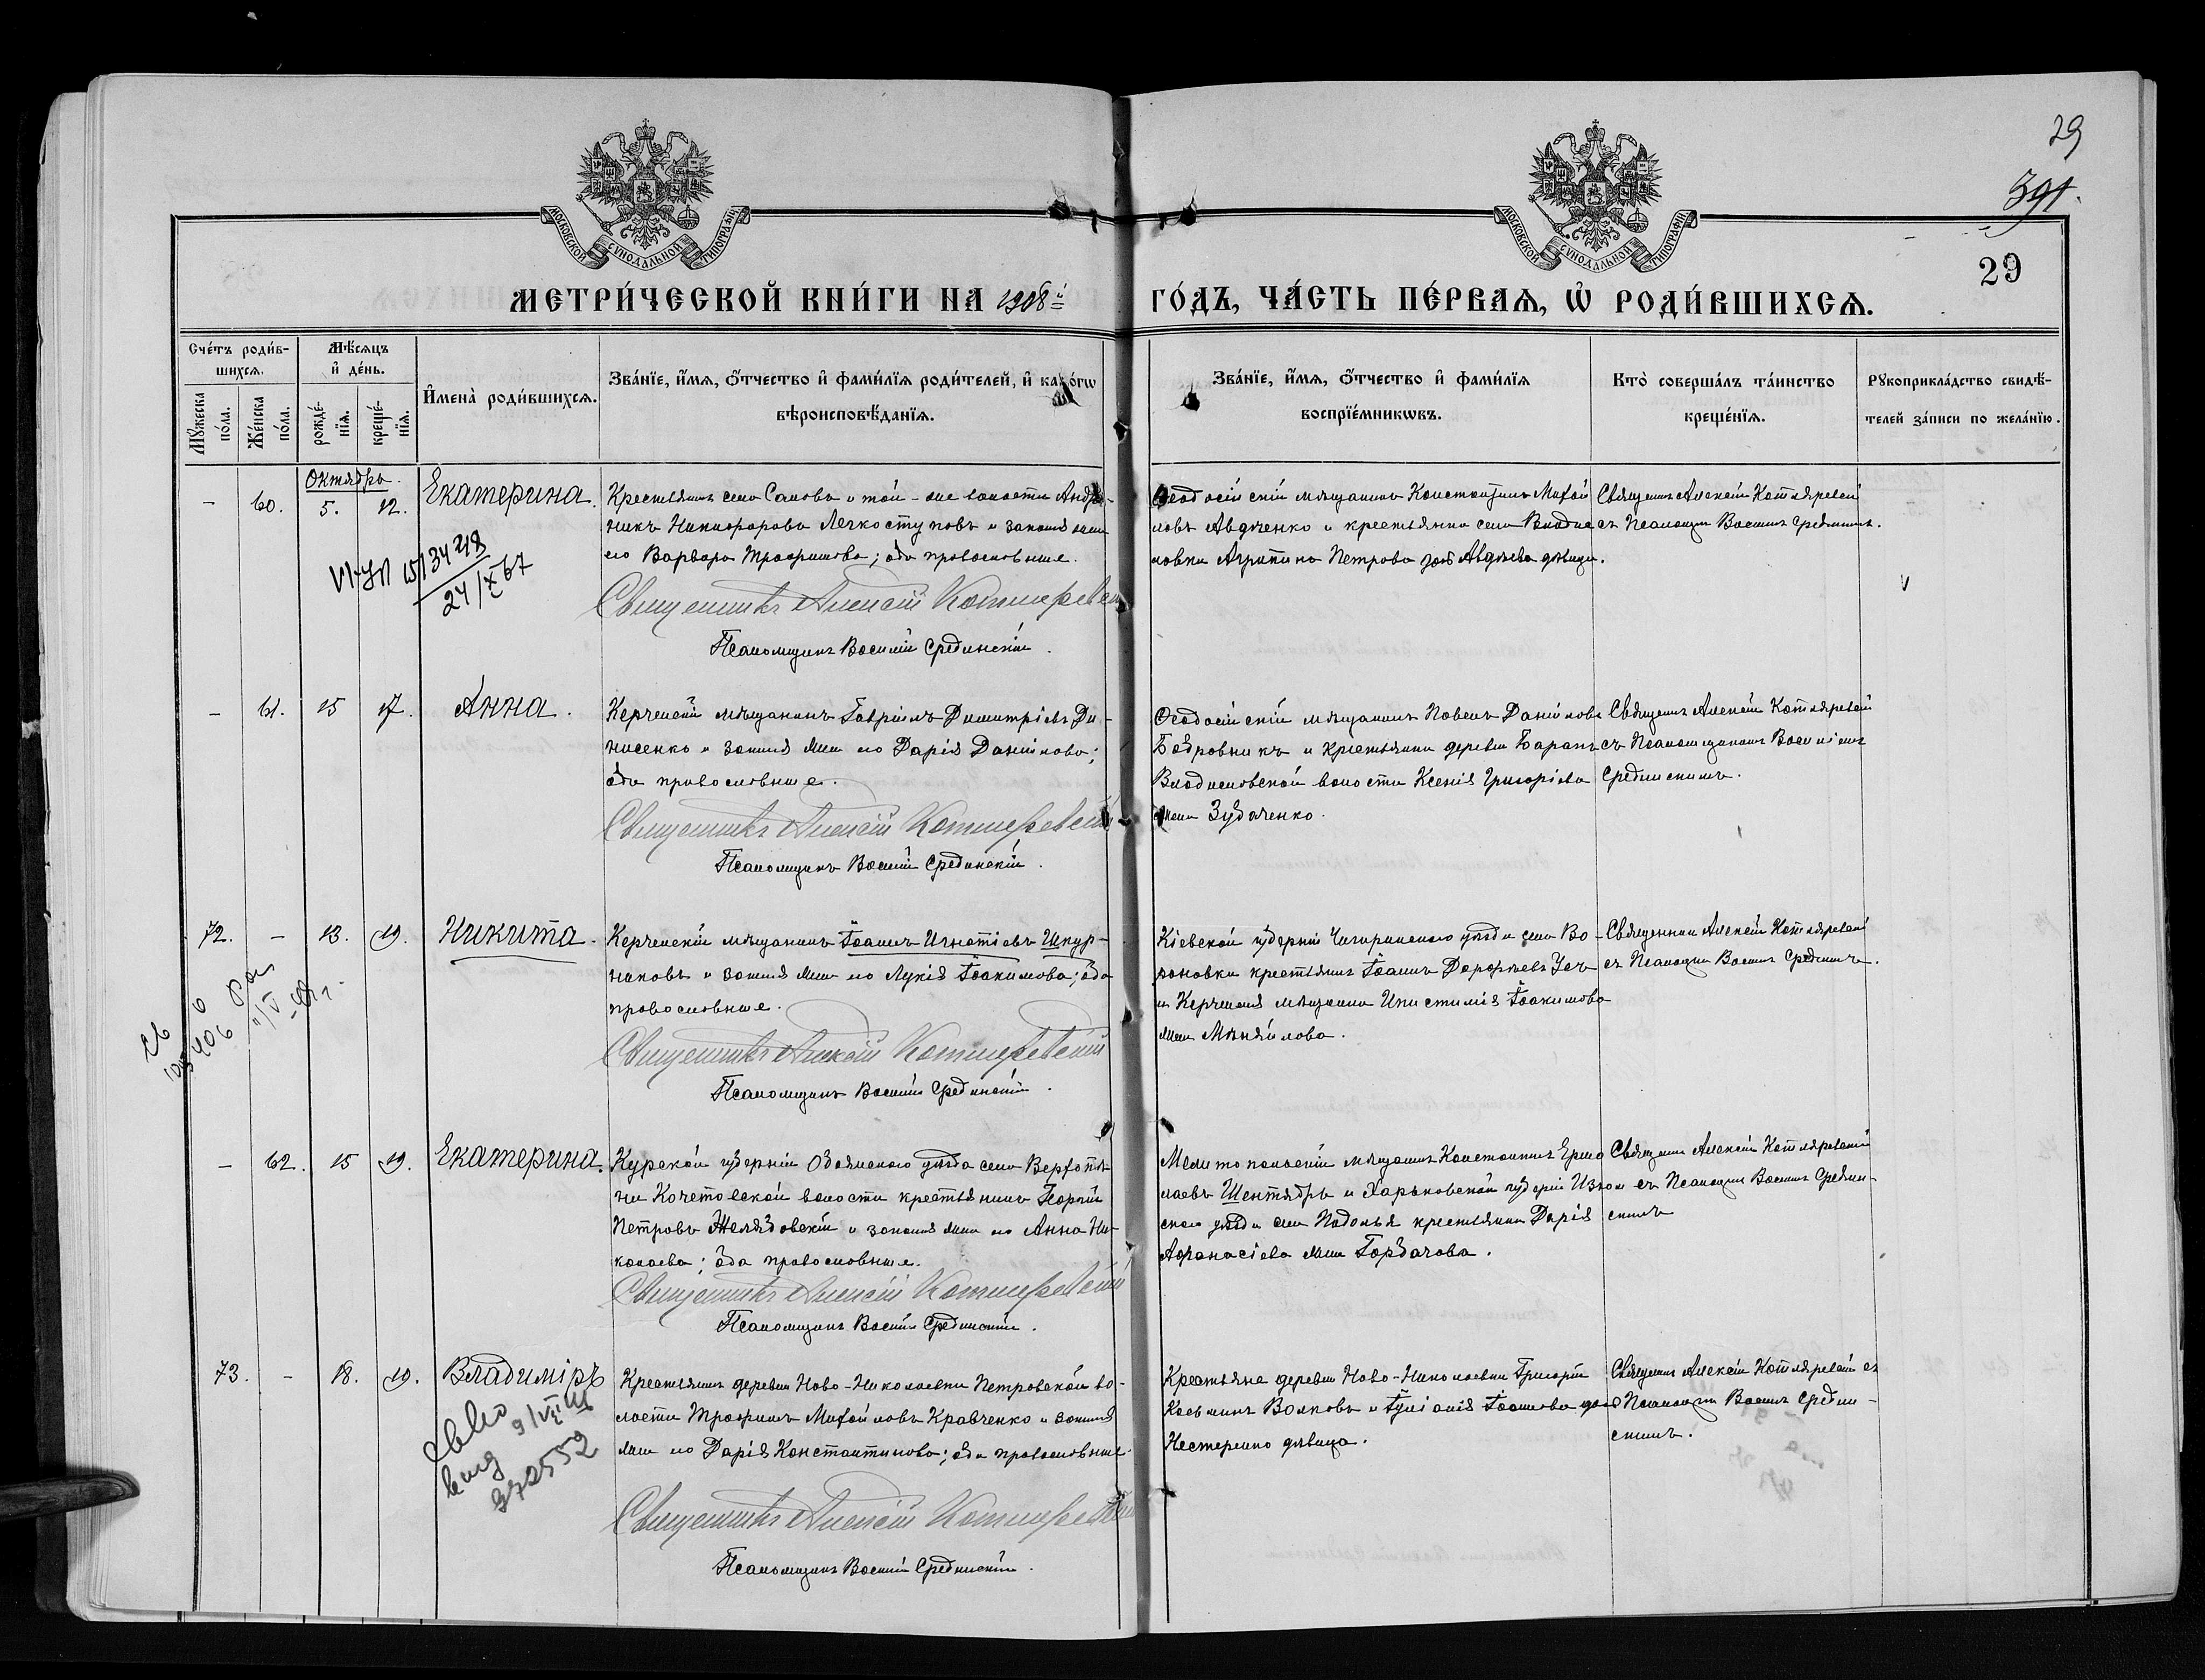 29
391.
29
МОСКОВСКОЙ СѴНОДАЛЬНОЙ ТИПОГРАФІИ
МОСКОВСКОЙ СѴНОДАЛЬНОЙ ТИПОГРАФІИ
МЕТРИ́ЧЕСКОЙ КНИ́ГИ НА 1908й ГО́ДЪ, ЧА́СТЬ ПЕ́РВАѦ, Ѽ РОДИ́ВШИХСѦ.
Сче́тъ роди́в-
шихсѧ.
Мꙋ́жеска по́ла.
Же́нска по́ла.
Мѣ́сѧцъ
и҆ де́нь.
рожде́-
нїѧ.
креще́-
нїѧ.
И҆мена̀ роди́вшихсѧ.
Зва́нїе, и҆́мѧ, ѻ҆́тчество и҆ фами́лїѧ роди́телей, и҆ како́гѡ
вѣроисповѣ́данїѧ.
Зва́нїе, и҆́мѧ, ѻ҆́тчество и҆ фами́лїѧ
воспрїе́мникѡвъ.
Кто̀ соверша́лъ та́инство
креще́нїѧ.
Рꙋкоприкла́дство свидѣ́-
телей за́писи по жела́нїю.
Октябрь.
- 60. 5. 12. Екатерина.
Крестьянинъ села Салова и той-же волости Андро-
никъ Никифоровъ Легкоступовъ и законная жена
его Варвара Трофимова; оба православные.
Священникъ Алексій Котляревскій
Псаломщикъ Василій Срединскій.
Ѳеодосійскій мѣщанинъ Константинъ Михай-
ловъ Авдѣенко и крестьянка села Владис-
ловки Агрипина Петрова Авдѣева дѣвица.
Священ. Алексій Котляревскій
съ Псаломщ. Василіемъ Срединскимъ.
1513428
24/X 67
- 61. 15 17. Анна.
Керченскій мѣщанинъ Гавріилъ Димитріевъ Де-
нисенко и законная жена его Дарія Даніилова;
оба православные.
Священникъ Алексій Котляревскій
Псаломщикъ Василій Срединскій.
Ѳеодосійскій мѣщанинъ Павелъ Даніиловъ
Бобровникъ и крестьянка деревни Баракъ
Владиславовской волости Ксенія Григоріева
жена Зубаченко.
Священ. Алексій Котляревскій
съ Псаломщикомъ Василіемъ
Срединскимъ.
72. - 13. 19. Никита.
Керченскій мѣщанинъ Іоаннъ Игнатіевъ Шкур-
наковъ и законная жена его Лукія Іоакимова; оба
православные.
Священникъ Алексій Котляревскій
Псаломщикъ Василій Срединскій.
Кіевской губерніи Чигиринскаго уѣзда села Во-
роновки крестьянинъ Іоаннъ Дорофеевъ
и Керченская мѣщанка Іоакимова
жена Михайлова.
Священник Алексій Котляревскій
съ Псаломщ. Василіемъ Срединск.
- 62. 15 19. Екатерина.
Курской губерніи Обоянскаго уѣзда села Верхопѣ-
нья Кочетовской волости крестьянинъ Георгій
Петровъ Желябовскій и законная жена его Анна Ни-
колаева; оба православные.
Священникъ Алексій Котляревскій
Псаломщикъ Василій Срединскій.
Мелитопольскій мѣщанинъ Константинъ Ермо-
лаевъ Шентябрь и Харьковской губерніи Изюм-
скаго уѣзда села Подолья крестьянка Дарія
Афанасіева жена Горбачова.
Священ. Алексій Котляревскій
съ Псаломщ. Василіемъ Средин-
скимъ
73. - 18. 19. Владиміръ
Крестьянинъ деревни Ново-Николаевки Петровской во-
лости Трофимъ Михайловъ Кравченко и законная
жена его Дарія Константинова; оба православные.
Священникъ Алексій Котляревскій
Псаломщикъ Василій Срединскій.
Крестьяне деревни Ново-Николаевки Григорій
Косьминъ Волковъ и Іуліанія Іоаннова
Нестеренко дѣвица.
Священ. Алексій Котляревскій съ
Псаломщ. Василіемъ Средин-
скимъ.